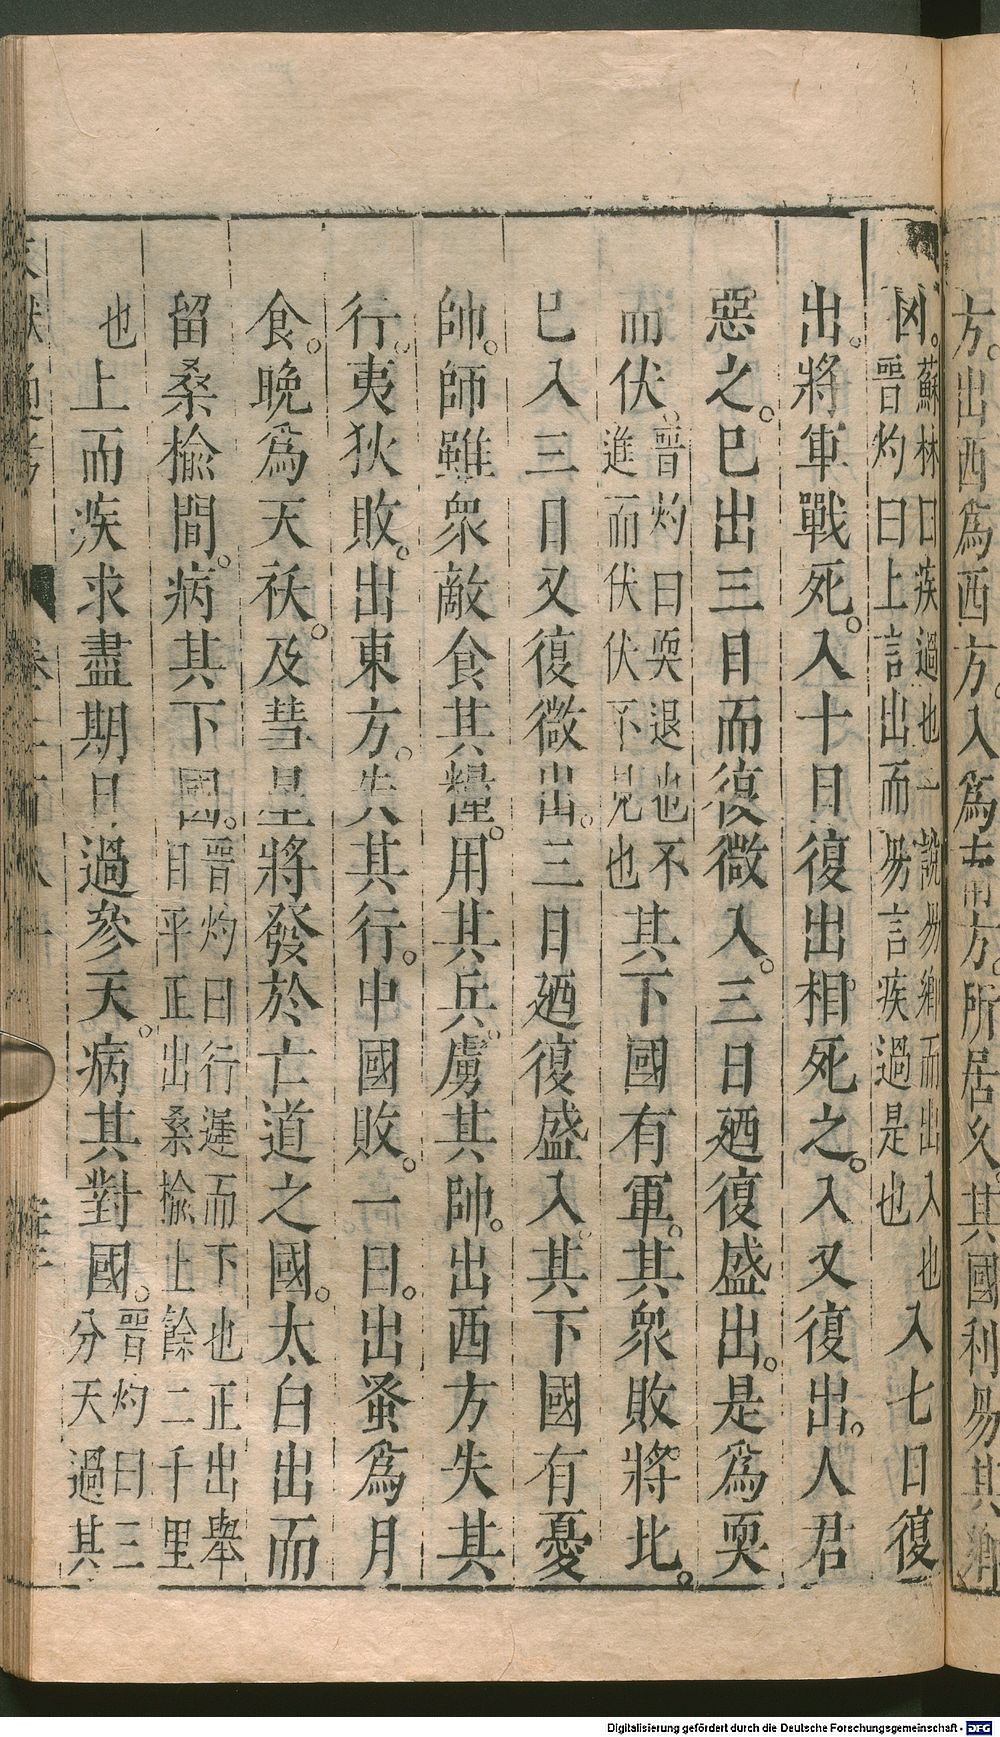 方。出西爲西方。入爲南方。所居久。其國利易。其鄉
凶。蘇林曰疾過也一說易鄉而出入也晉灼曰上言出而易言疾過是也入七日復
出。將軍戰死。入十日復出。相死之。入又復出。人君
惡之。已出三日而復微入。三日廼復盛出。是爲耎
而伏。晉灼曰耎退也不進而伏伏不見也其下國有軍。其衆敗將北。
已入三日又復微出。三日廼復盛入。其下國有憂
帥。師雖衆敵食其糧。用其兵。虜其帥。出西方失其
行。夷狄敗。出東方。失其行。中國敗。一曰。出蚤爲月
食。晚爲天祅。及彗星將發於亡道之國。太白出而
留桑榆間。病其下國。晉灼曰行遲而下也正出舉目平正出桑榆上餘二千里
也上而疾求盡期日過參天。病其對國。晉灼曰三分天過其
Digitalisierung gefördert durch die Deutsche Forschungsgemeinschaft - DFG